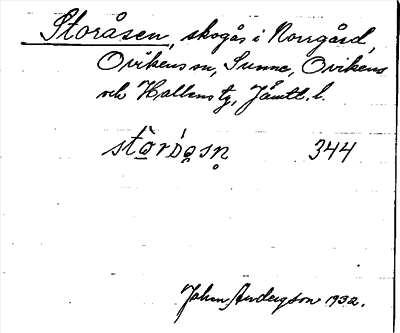 Storåsen, skogås i Norrgård,
Ovikens sn, Sunne, Ovikens
och Hallens tg, Jämtl. l.
stōrōsn̥ 344
John Anderson 1932.